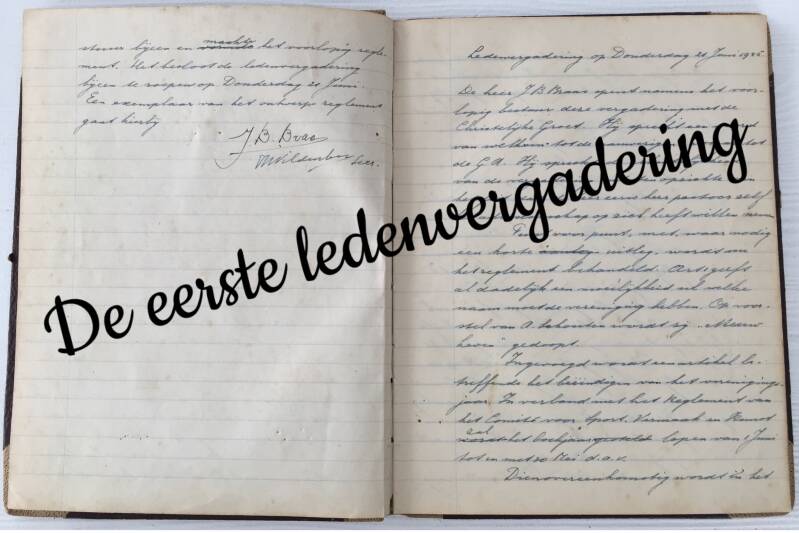 stuur bijeen en machte het voorlopig regle-
ment. Het besloot de ledenvergadering
bijeen te roepen op Donderdag 20 Juni.
Een exemplaar van het ontwerp reglement
gaat hierbij
J. B. Braas
Secr.
De eerste ledenvergadering
Ledenvergadering op Donderdag Juni
De heer J B Braas opent namens het voor-
lopig bestuur deze vergadering met de
Christelijke Groet. Hij spreekt een
van welkom tot de
de G.A. Hij
van de
eens heer pastoor zelf
op zich heeft willen nemen
voor punt, met, waar nodig
een korte uitleg, wordt nu
het reglement behandeld. Art. 1 geeft
al dadelijk een moeilijkheid nl welke
naam moet de vereniging hebben. Op voor-
stel van A. Schouten wordt zij "Meeuw
" gedoopt.
Ingevoegd wordt een artikel be-
treffende het beëindigen van het verenigings-
jaar. In verband met het Reglement van
het Comité voor Sport, Vermaak en Kunst
zal
wordt het boekjaar gesteld lopen van 1 Juni
tot en met Mei d.a.v.
Dienovereenkomstig wordt in het